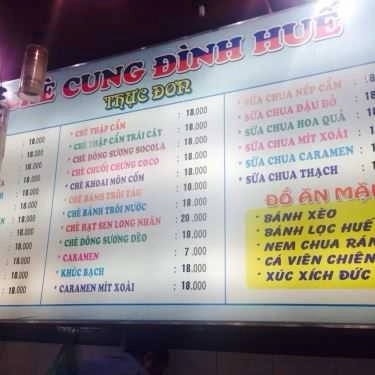 CHÈ CUNG ĐÌNH HUẾ
THỰC ĐƠN
18.000
18.000
18.000
18.000
18.000
18.000
18.000
18.000
CHÈ THẬP CẨM : 18.000
CHÈ THẬP CẨM TRÁI CÂY : 18.000
CHÈ ĐÔNG SƯƠNG SOCOLA : 18.000
CHÈ CHUỐI CHƯNG COCO : 18.000
CHÈ KHOAI MÔN CỐM : 18.000
CHÈ BÁNH TRÔI TÀU : 18.000
CHÈ BÁNH TRÔI NƯỚC : 18.000
CHÈ HẠT SEN LONG NHÃN : 20.000
CHÈ ĐÔNG SƯƠNG DẺO : 18.000
CARAMEN : 7.000
KHÚC BẠCH : 18.000
CARAMEN MÍT XOÀI : 18.000
SỮA CHUA NẾP CẨM
SỮA CHUA DẦU ĐỎ : 18.000
SỮA CHUA HOA QUẢ : 18.000
SỮA CHUA MÍT XOÀI : 18.000
SỮA CHUA CARAMEN : 18.000
SỮA CHUA THẠCH : 18.000
ĐỒ ĂN MẶ
* BÁNH XÈO
* BÁNH LỌC HUẾ
* NEM CHUA RÁN
* CÁ VIÊN CHIÊN
* XÚC XÍCH ĐỨC